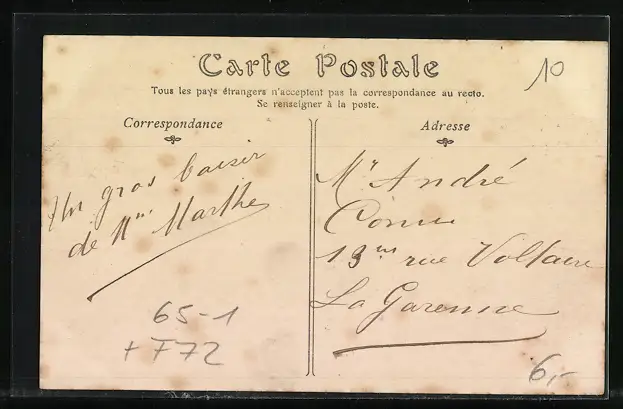 Carte Postale
10
Tous les pays étrangers n'acceptent pas la correspondance au recto.
Se renseigner à la poste.
Correspondance
Adresse
Un gros baiser
de Mme Marthe
65-1
+ F72
Mr André
Cornu
13 rue Voltaire
La Garenne
6,-